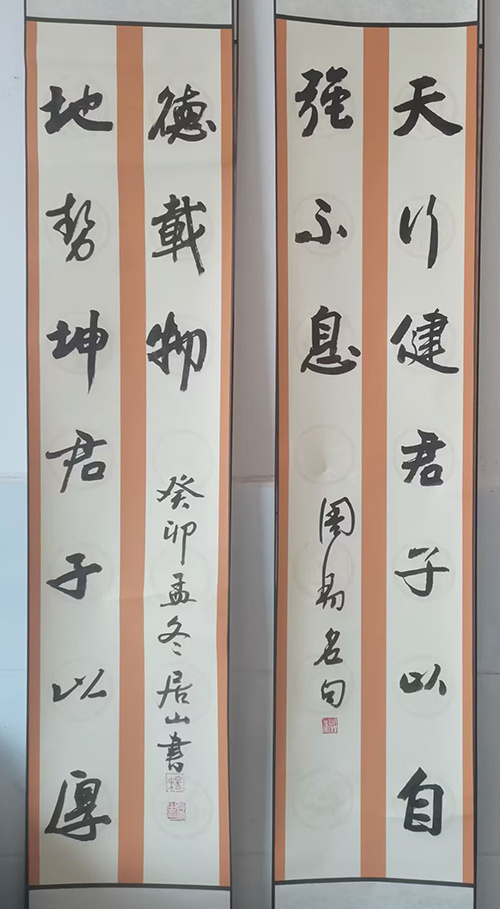 天行健君子以自
强不息
周易名句
地势坤君子以厚
德載物
癸卯孟冬居山書